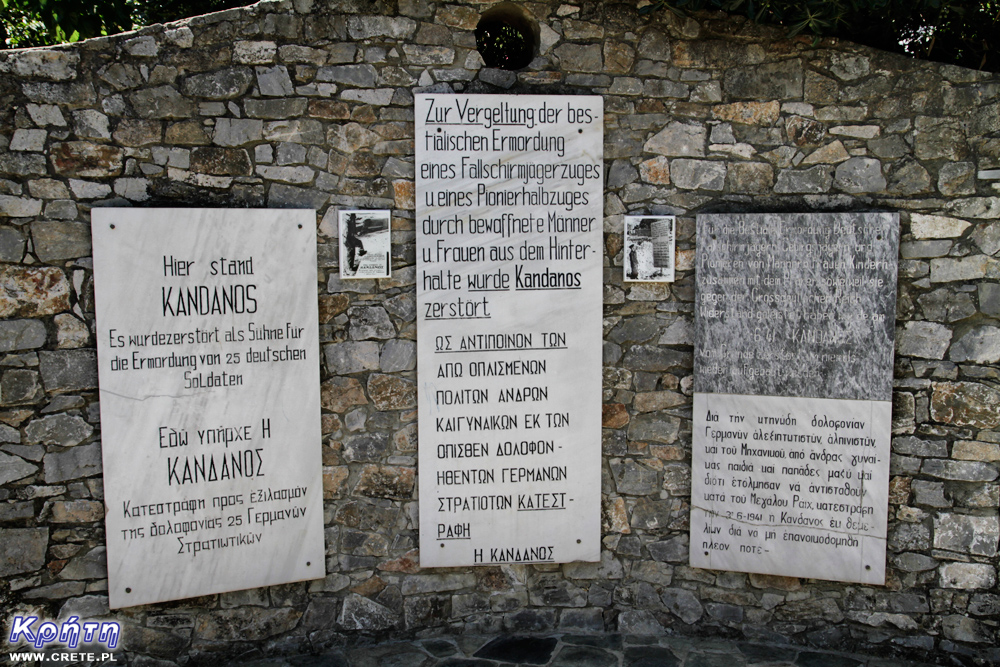 Hier stand
KANDANOS
Es wurdezerstört als Sühne für
die Ermordung von 25 deutschen
Soldaten
Εδώ υπήρχε Η
ΚΑΝΔΑΝΟΣ
Κατεστράφη προς εξιλασμόν
της δολοφανίας 25 Γερμανών
Στρατιωτικών
Zur Vergeltung der bes-
tialischen Ermordung
eines Fallschirmjägerzuges
u eines Pionierhalbzuges
durch bewaffnete Männer
u. Frauen aus dem Hinter-
halte wurde Kandanos
zerstört
ΩΣ ΑΝΤΙΠΟΙΝΟΝ ΤΩΝ
ΑΠΟ ΟΠΛΙΣΜΕΝΩΝ
ΠΟΛΙΤΩΝ ΑΝΔΡΩΝ
ΚΑΙΓΥΝΑΙΚΩΝ ΕΚ ΤΩΝ
ΟΠΙΣΘΕΝ ΔΟΛΟΦΟΝ-
ΗΘΕΝΤΩΝ ΓΕΡΜΑΝΩΝ
ΣΤΡΑΤΙΩΤΩΝ ΚΑΤΕΣΤ-
ΡΑΦΗ
Η ΚΑΝΔΑΝΟΣ
Ermordung Deutscher
Fallschirmjägern
Pionieren von Männern Frauen Kindern
zusammen mit
gegen das Grosse Reich
Widerstand
KANDANOS
Διά την κτηνώδη δολοφονίαν
Γερμανών αλεξιπτωτιστών, αλπινιστών,
και του Μηχανικού από άνδρας γυναι-
κας παιδιά και παπάδες μαζύ και
διότι ετόλμησαν να αντισταθούν
κατά του Μεγάλου Ραιχ, κατεστράφη
την 3η-6-1941 η Κάνδανος εκ θεμε-
λίων διά να μη επανοικοδομηθή
πλέον ποτέ-
Κρήτη
WWW.CRETE.PL